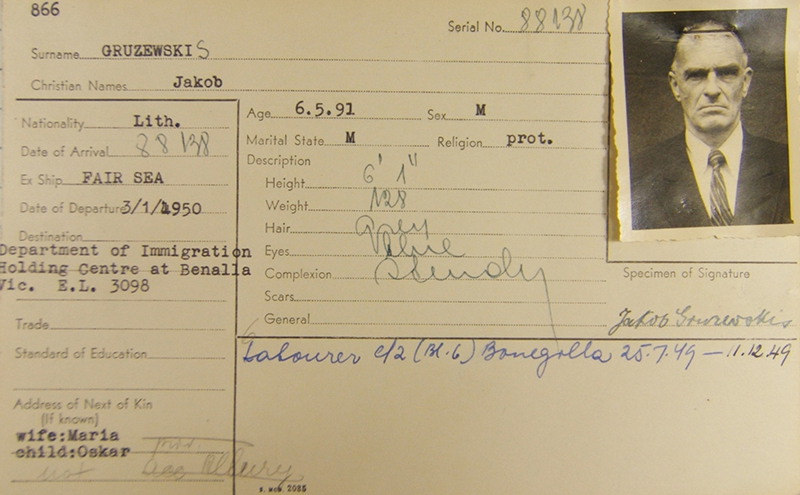 866
Serial No. 88138
Surname GRUZEWSKIS
Christian Names Jakob
Nationality Lith.
Date of Arrival 88138
Ex Ship FAIR SEA
Date of Departure 3/1/1950
Destination
Department of Immigration
Holding Centre at Benalla
Vic. E.L. 3098
Trade
Standard of Education
Address of Next of Kin
(If known)
wife:Maria
child:Oskar
Age 6.5.91 Sex M
Marital State M Religion prot.
Description
Height 6' 1"
Weight 128
Hair Grey
Eyes Blue
Complexion
Scars
General
Specimen of Signature
Jakob Gruzewskis
Labourer c/2 (Bl.6) Bonegilla 25.7.49 — 11.12.49